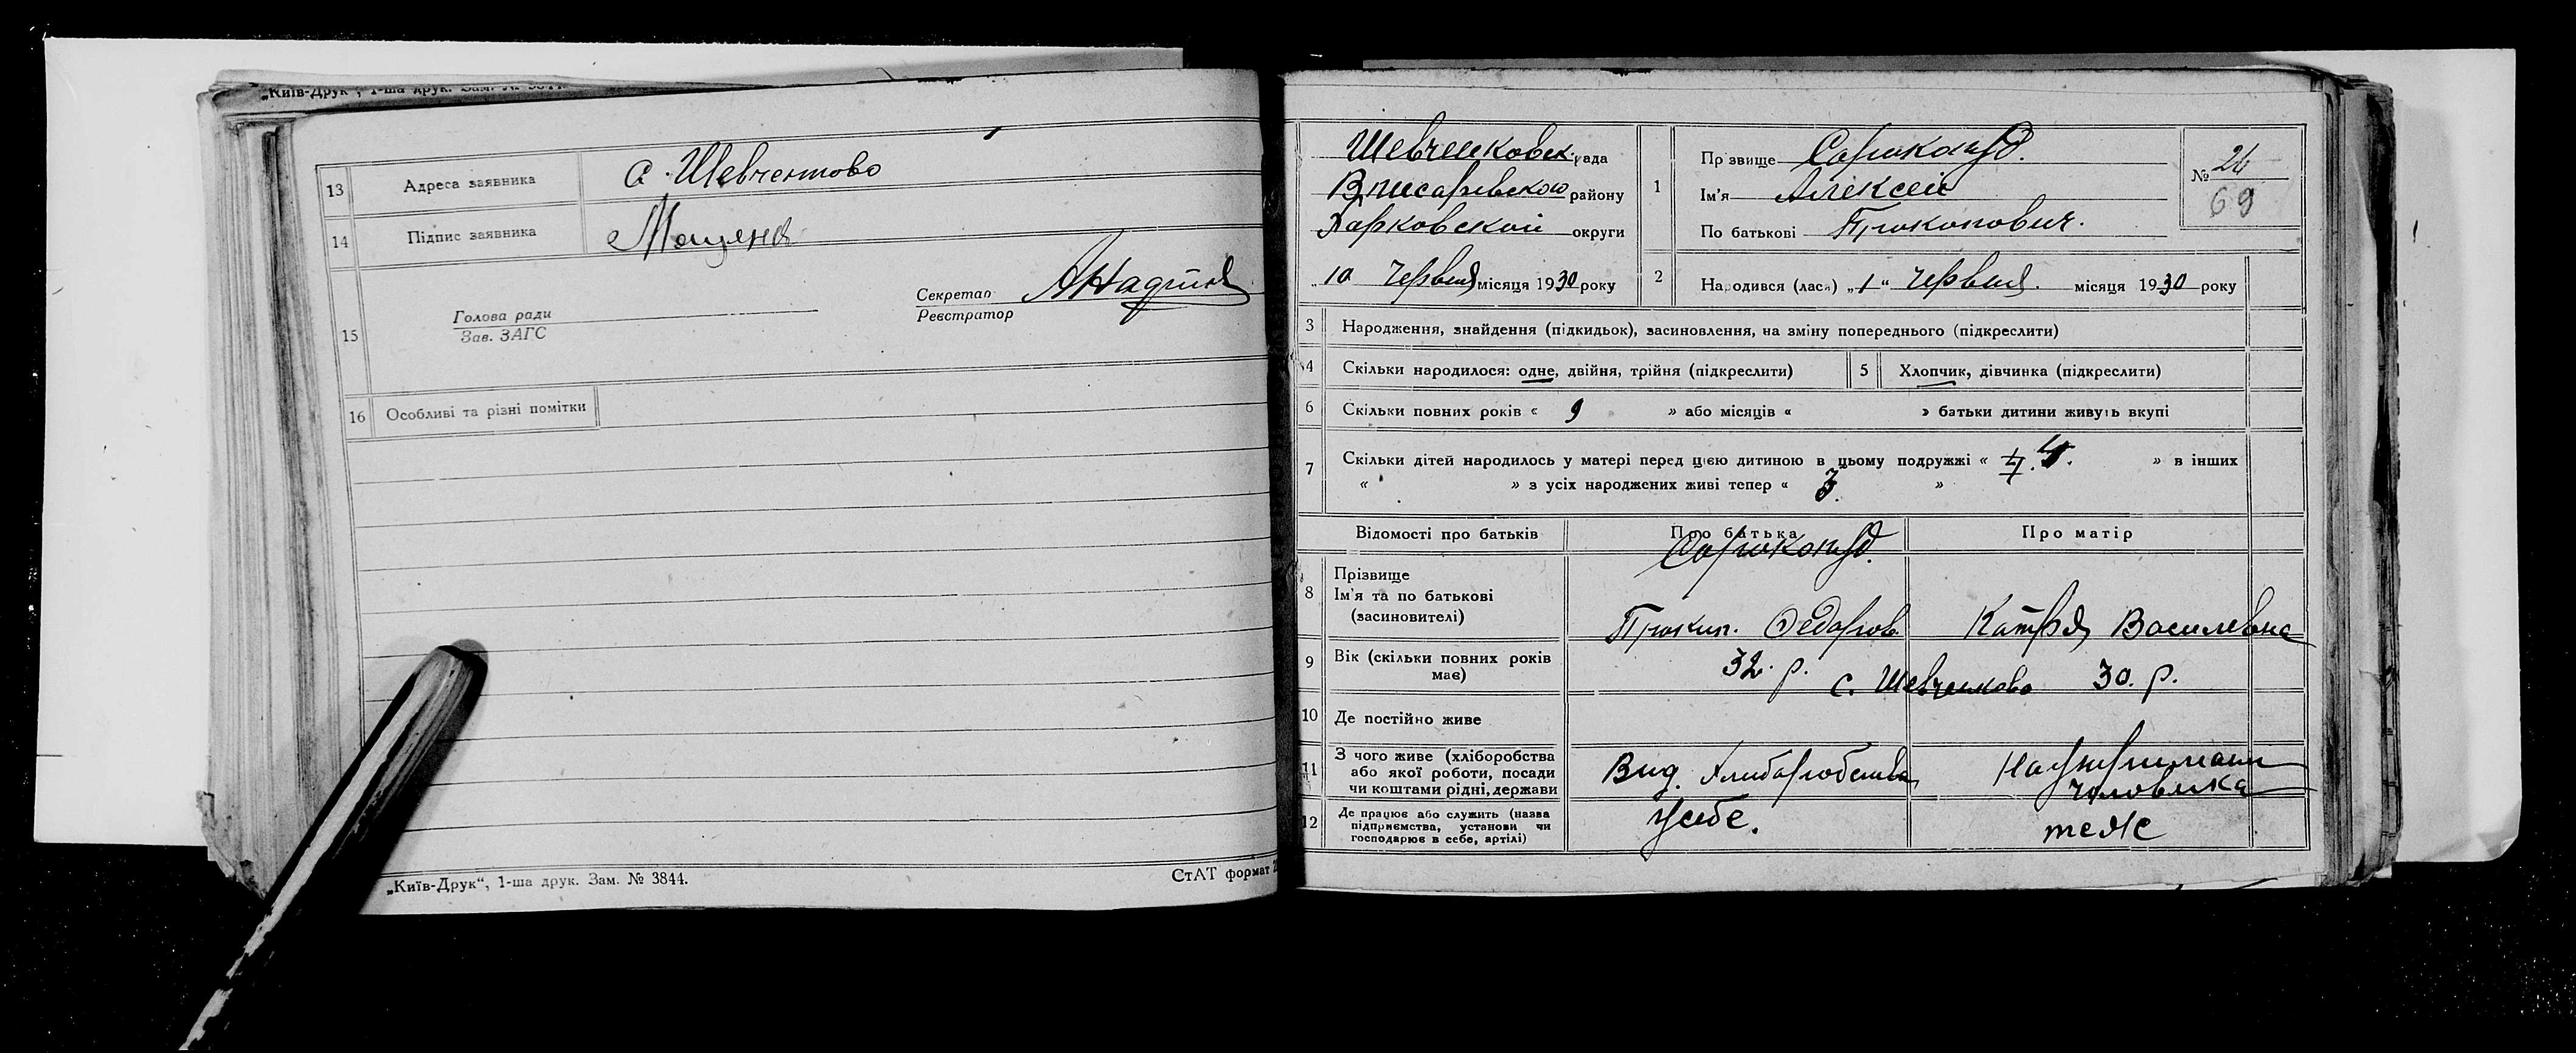 „Київ-Друк", 1-ша друк. Зам. №
13 Адреса заявника с. Шевченково
14 Підпис заявника
15 Голова ради
Зав. ЗАГС
Секретар
Реєстратор
16 Особливі та різні помітки
„Київ-Друк“, 1-ша друк. Зам. № 3844.
СтАТ формат
Шевченковск. рада
В писаревского району
Харковской округи
„10 червня місяця 1930 року
1 Прізвище
Ім'я Алексей
По батькові Прокопович.
№ 26
69
2 Народився (лася) „1“ червня. місяця 1930 року
3 Народження, знайдення (підкидьок), засиновлення, на зміну попереднього (підкреслити)
4 Скільки народилося: одне, двійня, трійня (підкреслити)
5 Хлопчик, дівчинка (підкреслити)
6 Скільки повних років « 9 » або місяців « » батьки дитини живуть вкупі
7 Скільки дітей народилось у матері перед цією дитиною в цьому подружжі « 4. 4. » в інших
« » з усіх народжених живі тепер « 3. »
Відомості про батьків Про батька Про матір
8 Прізвище
Ім'я та по батькові
(засновителі)
Прокип. Федоров Катря Василевна
9 Вік (скільки повних років
має)
32. р. 30. р.
с. Шевченково
10 Де постійно живе
11 З чого живе (хліборобства
або якої роботи, посади
чи коштами рідні, держави
Вид. Хлиборобства
чоловика
12 Де працює або служить (назва
підприємства, установи чи
господарює в себе, артілі)
усебе.
теж